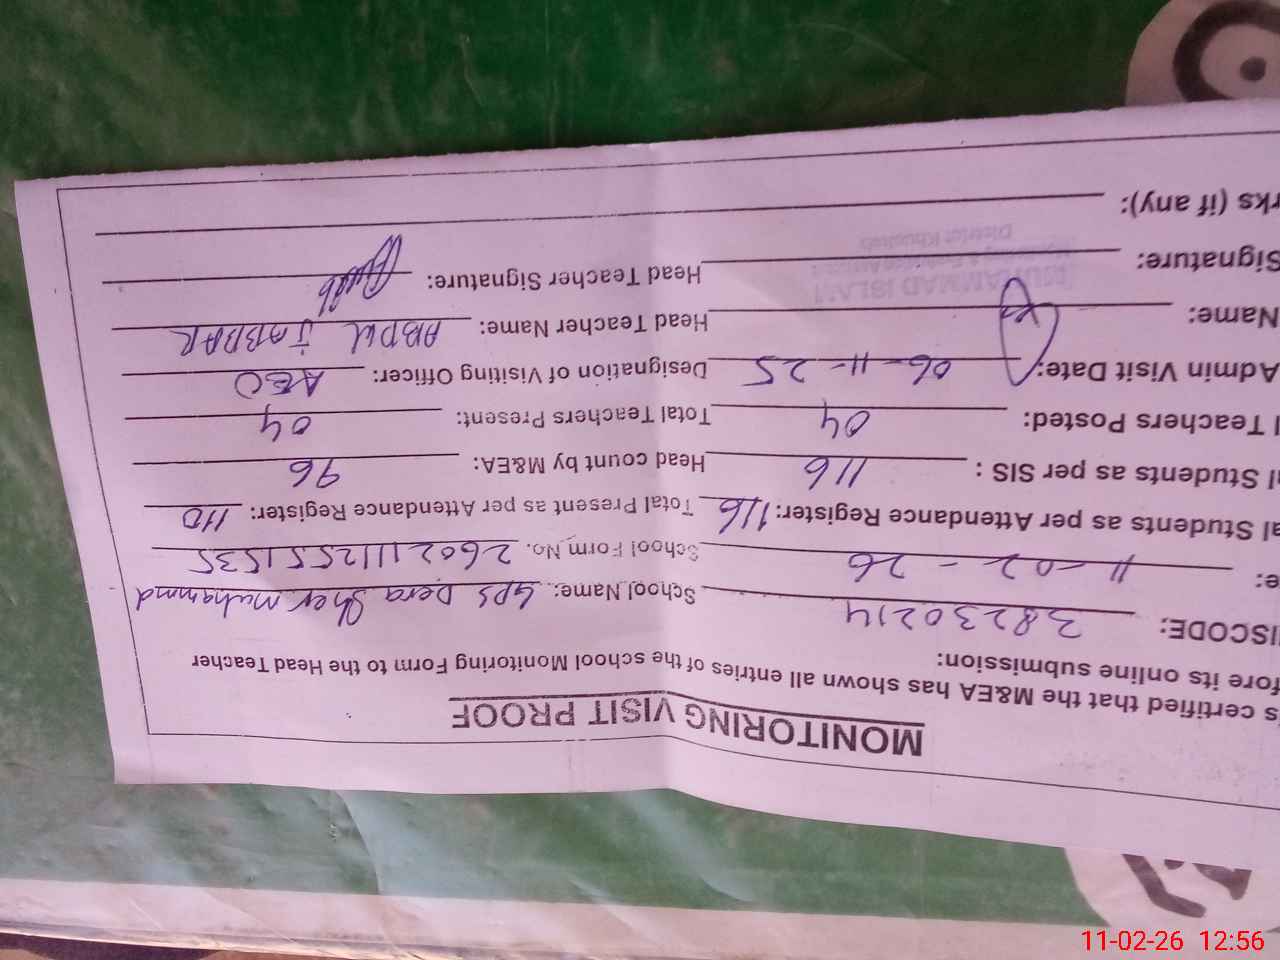 MONITORING VISIT PROOF
s certified that the M&EA has shown all entries of the school Monitoring Form to the Head Teacher
fore its online submission:
ISCODE: 38230214 School Name: GPS Dera Sher muhammd
e: 11-02-26 School Form No. 26021112551535
al Students as per Attendance Register: 116 Total Present as per Attendance Register: 110
al Students as per SIS : 116 Head count by M&EA: 96
l Teachers Posted: 04 Total Teachers Present: 04
Admin Visit Date: 06-11-25 Designation of Visiting Officer: AEO
Name: Head Teacher Name: ABDUL JABBAR
Signature: Head Teacher Signature:
MUHAMMAD ISLAM
District Khushab
rks (if any):
11-02-26 12:56